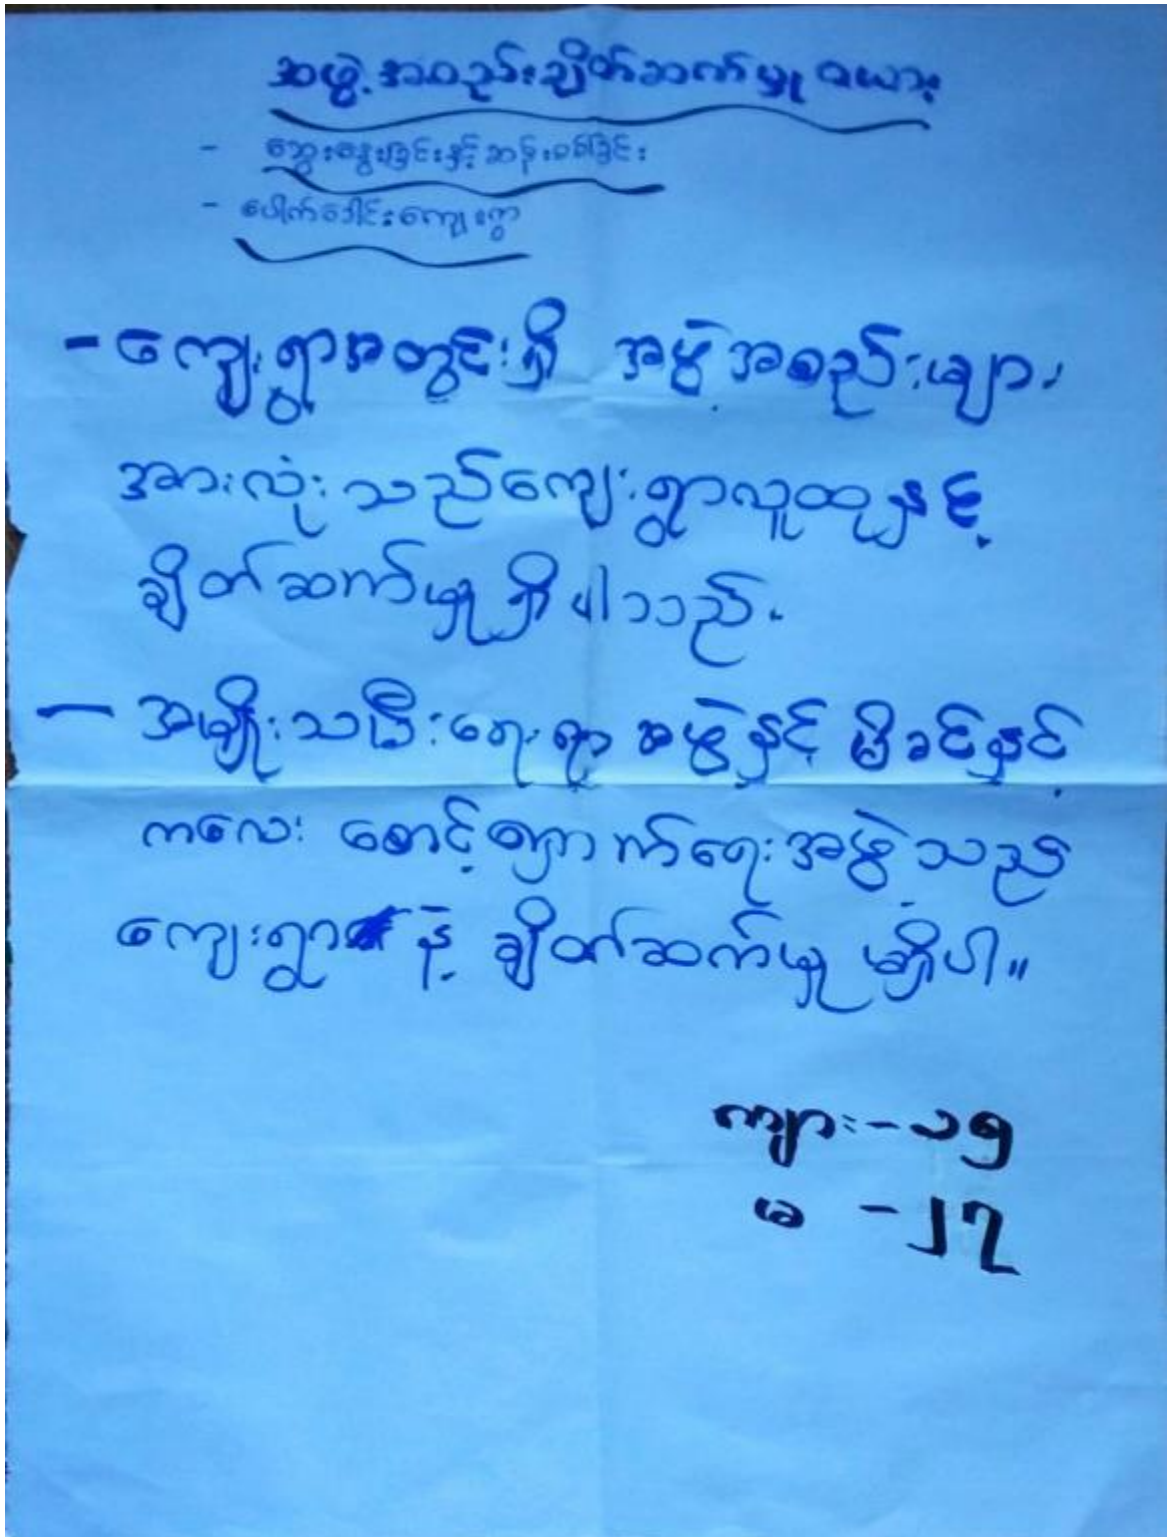 အဖွဲ့အစည်းချိတ်ဆက်မှု ဇယား
- ဆွေးနွေးခြင်းနှင့် ဆန်းစစ်ခြင်း
- ပေါက်ခေါင်းကျေးရွာ
- ကျေးရွာအတွင်းရှိ အဖွဲ့အစည်းများ
အားလုံးသည်ကျေးရွာလူထုနှင့်
ချိတ်ဆက်မှုရှိပါသည်.
- အမျိုးသမီးရေးရာ အဖွဲ့နှင့် မိခင်နှင့်
ကလေး စောင့်ရှောက်ရေးအဖွဲ့သည်
ကျေးရွာ နဲ့ ချိတ်ဆက်မှု မရှိပါ။
ကျား - ၁၅
မ - ၂၇